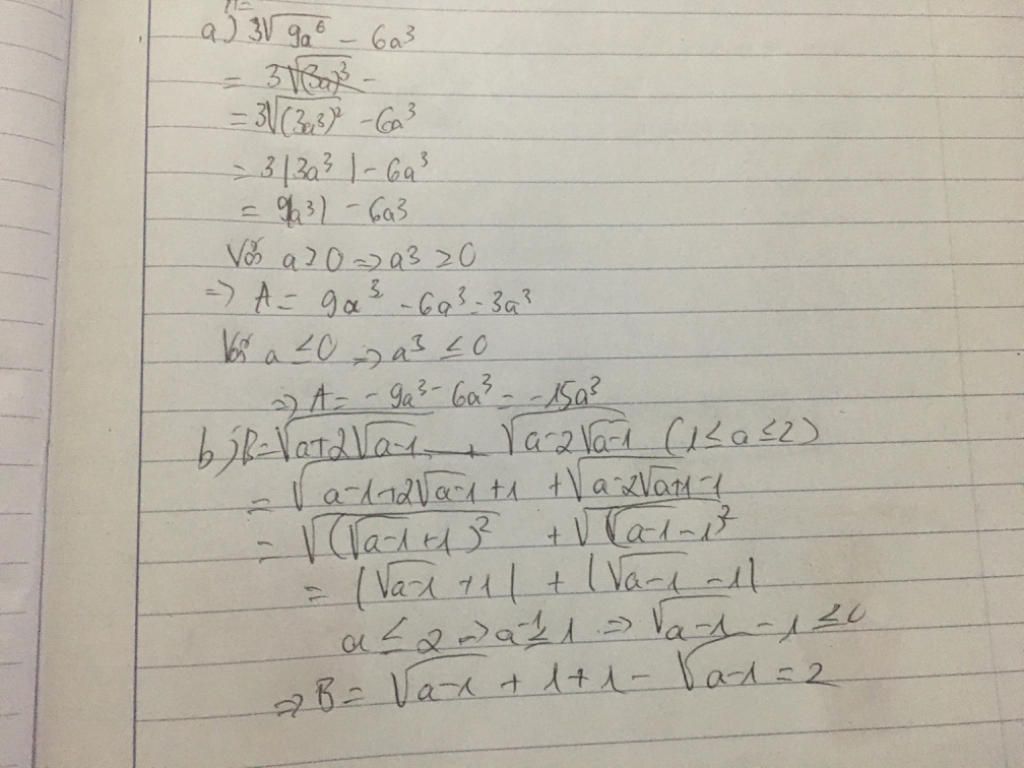 a) 3√9a⁶ - 6a³
= 3√(3a)³ -
= 3√(3a³)² - 6a³
= 3|3a³| - 6a³
= 9|a³| - 6a³
Với a > 0 => a³ > 0
=> A = 9a³ - 6a³ = 3a³
Với a ≤ 0 => a³ ≤ 0
=> A = - 9a³ - 6a³ = -15a³
b) B = √a+2√a-1 + √a-2√a-1 (1 ≤ a ≤ 2)
= √a-1+2√a-1+1 + √a-2√a+1-1
= √(√a-1+1)² + √(√a-1-1)²
= |√a-1 + 1| + |√a-1 - 1|
a ≤ 2 => a-1 ≤ 1 => √a-1 - 1 ≤ 0
=> B = √a-1 + 1 + 1 - √a-1 = 2